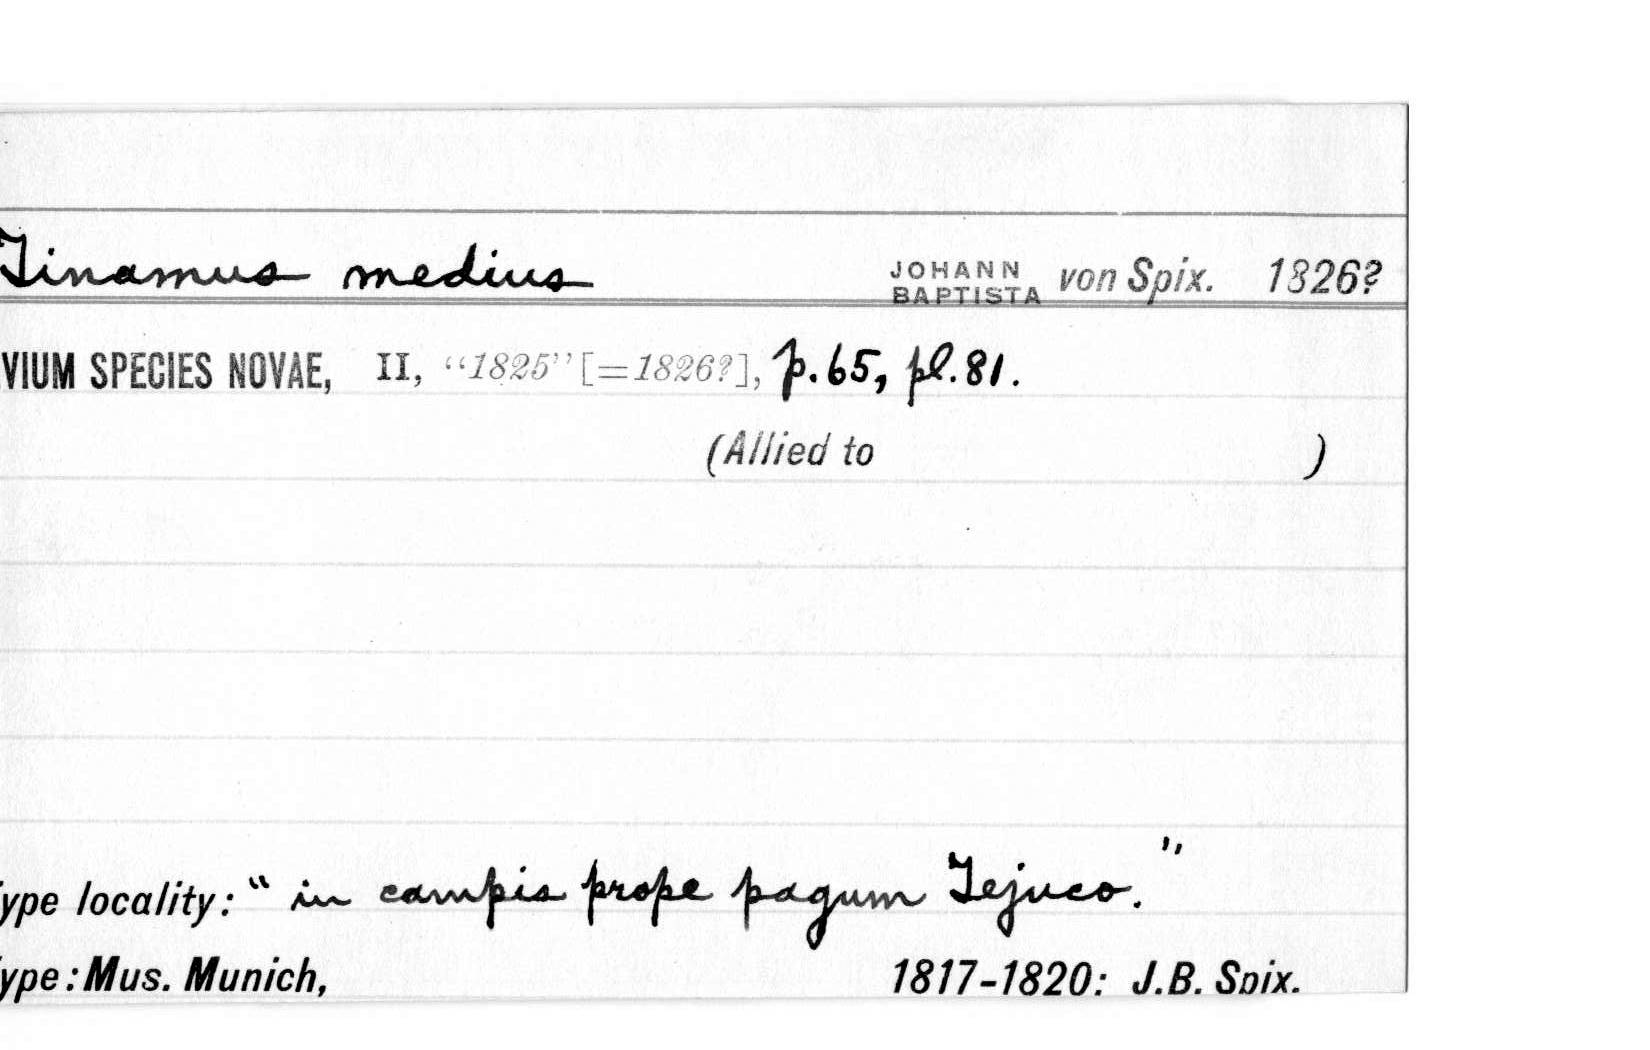 Tinamus medius JOHANN BAPTISTA von Spix. 1826?
VIUM SPECIES NOVAE, II, "1825" [=1826?], p.65, pl.81.
(Allied to )
ype locality: "in campis prope pagum Tejuco."
ype: Mus. Munich, 1817-1820: J.B. Spix.